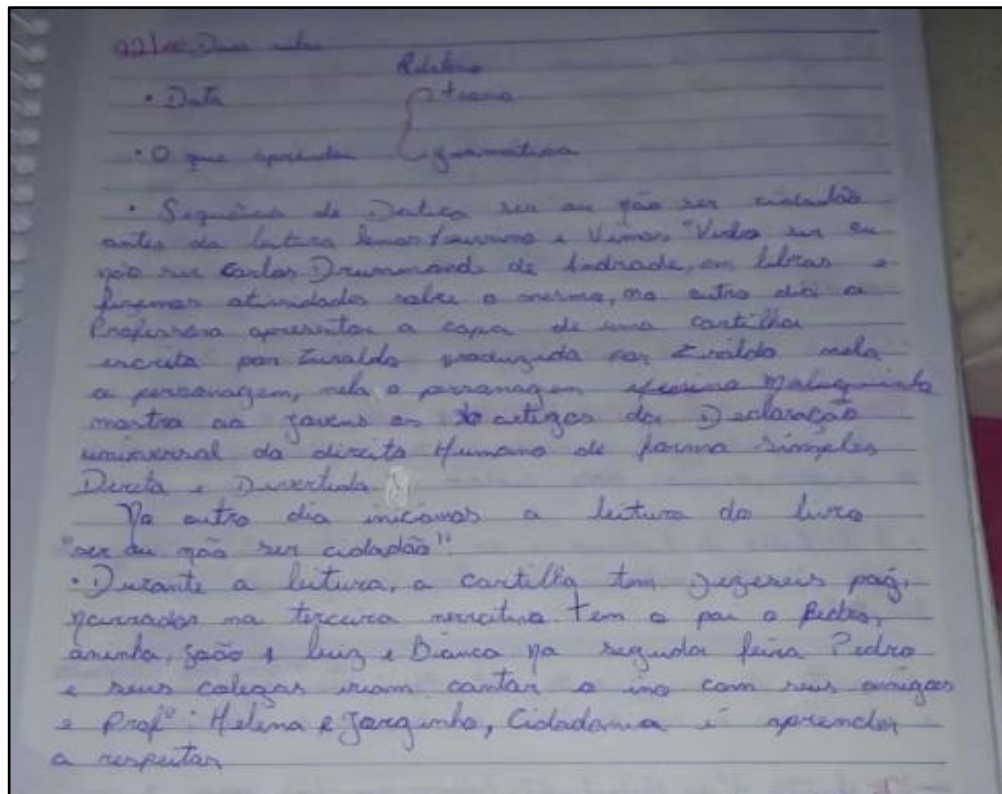 22/ Duas aulas
Relatório
• Data
tema
• O que aprendeu gramática
• Sequência de Datica ser ou não ser cidadão
antes da leitura lemos e Vimos "Verbo ser ou
não ser Carlos Drummond de Andrade, em libras e
fizemos atividades sobre o mesmo, no outro dia a
Professora apresentou a capa de uma cartilha
escrita por Ziraldo produzida por Ziraldo nela
a personagem, nela o personagem Maluquinho
mostra ao jovens os artigos da Declaração
universal do direito Humano de forma simples
Dereta e Divertida
No outro dia iniciamos a leitura do livro
"ser ou não ser cidadão".
• Durante a leitura, a cartilha tem Dezeseis pág.
narrados na terceira narrativa tem o pai o Pedro,
aninha, João e luiz e Bianca na segunda feira Pedro
e seus colegas iriam cantar o ino com seus amigos
e Profª: Helena e Jorginho, Cidadania é aprender
a respeitar